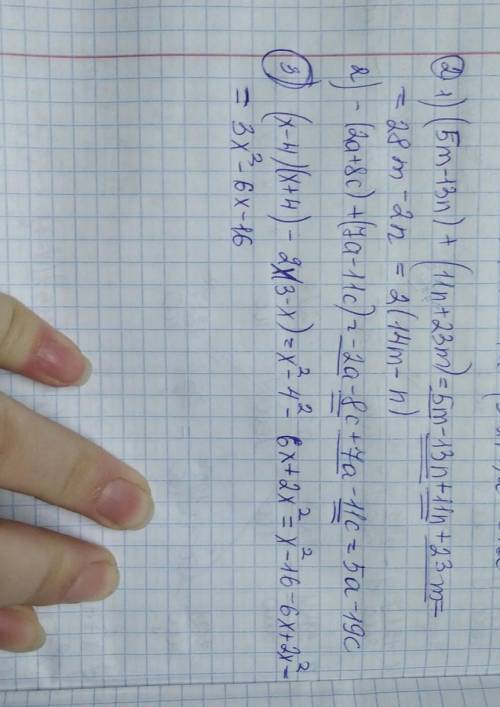 ② 1) (5m-13n) + (11n+23m) = 5m-13n+11n+23m=
= 28m-2n = 2(14m-n)
2) - (2a+8c)+(7a-11c)=-2a-8c+7a-11c=5a-19c
③ (x-4)(x+4) - 2x(3-x)=x²-4²- 6x+2x²=x²-16-6x+2x²=
= 3x²-6x-16